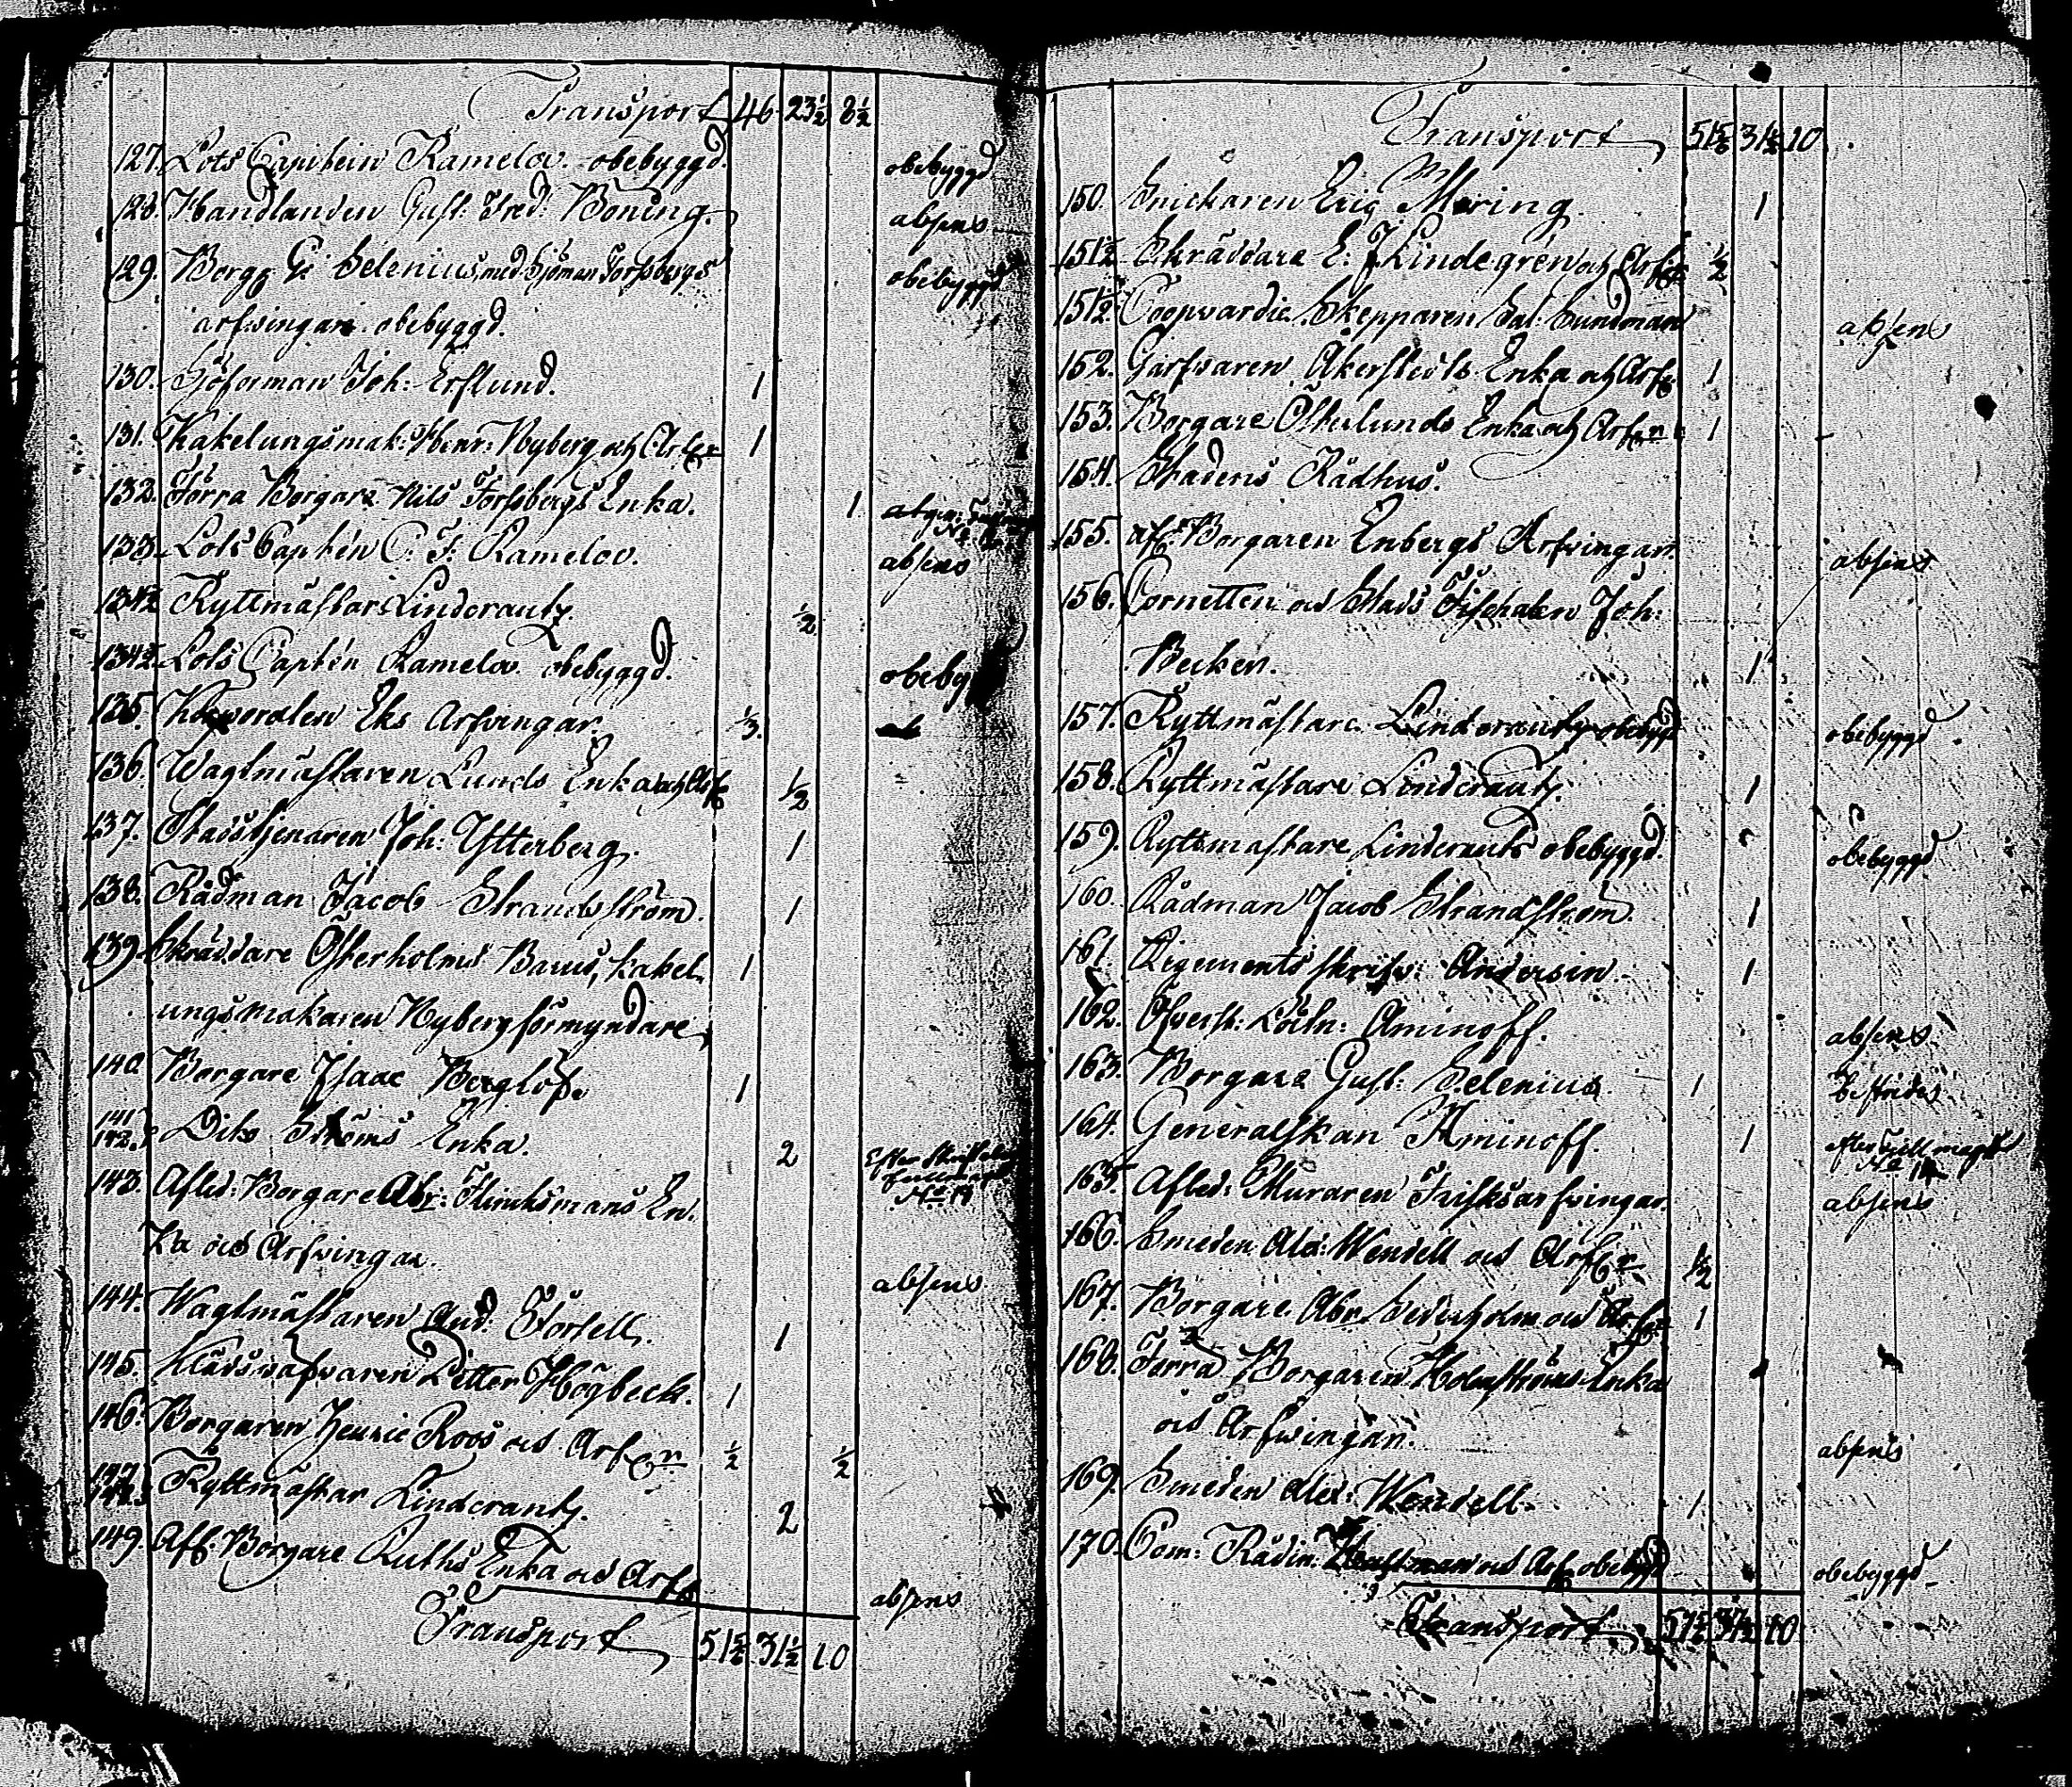 Transport 46 23½ 8½
127. Lots Capitein Ramelov. obebyggd. obebyggd
128. Handlanden Gust: Fred: Boning. absens
129. Borg G: Selenius, med Sjöman Forssbergs obebyggd
arfvingar obebyggd.
130. Sjöforman Joh: Erslund. 1
131. Kakelungsmak: Henr: Nyberg och Arf. 1
132. Förra Borgare Nils Forssbergs Enka. 1
133. Lots Captén C: F: Ramelov. absens
134½ Ryttmästar Linderantz. ½
134½ Lots Captén Ramelov obebyggd. obeby
135. Eks Arfvingar. ⅓.
136. Wagtmästaren Lunds Enka och Arf ½
137. Stadstjenaren Joh: Ytterberg. 1
138. Rådman Jacob Strandström. 1
139. Skräddare Österholms Barns, Kakel 1
ungsmakaren Nyberg förmyndare
140. Borgare Isaac Berglöf. 1
141 142. Dito Ströms Enka. 2
143. Afled: Borgare Abr: Flincksmans En-
ka och Arfvingar. absens
144. Wagtmästaren And: Forsell. 1
145. Klädsvafvaren Petter Högbeck. 1
146. Borgaren Henric Roos och Arf ½ ½
147 148. Ryttmästar Linderantz. 2
149. Afl. Borgare Ruths Enka och Arf absens
Transport 51⅚ 31½ 10
Transport 51⅚ 31½ 10
150. Snickaren Eric Moring. 1
151½ Skräddare E: J Lindegren och Arf ½
151½ Coopvardie Skepparen Sal: Sundman absens
152. Garfvaren Åkerstedts Enka och Arf 1
153. Borgare Österlunds Enka och Arf 1
154. Stadens Rådhus.
155. afl: Borgaren Enbergs Arfvingar. absens
156. Cornetten och Stads Fischalen Joh:
Becken. 1
157. Ryttmästare Linderantz obebygd obebyggd
158. Ryttmästare Linderantz. 1
159. Ryttmästare Linderantz obebyggd. obebyggd
160. Rådman Jacob Strandström. 1
161. Regements skrifv: Andersin 1
162. Öfverst: Löitn: Aminoff. absens
163. Borgare Gust: Selenius 1
164. Generalskan Aminoff. 1
165. Afled: Muraren Frisks arfvingar. absens
166. Smeden Alex: Wendell och Arf ½
167. Borgare Abr. Sederholm och Arf 1
168. Förra Borgaren Holmströms Enka
och Arfvingar. absens
169. Smeden Alex: Wendell. 1
170. Com: Rådin och Arf obebyggd obebyggd
Transport 10